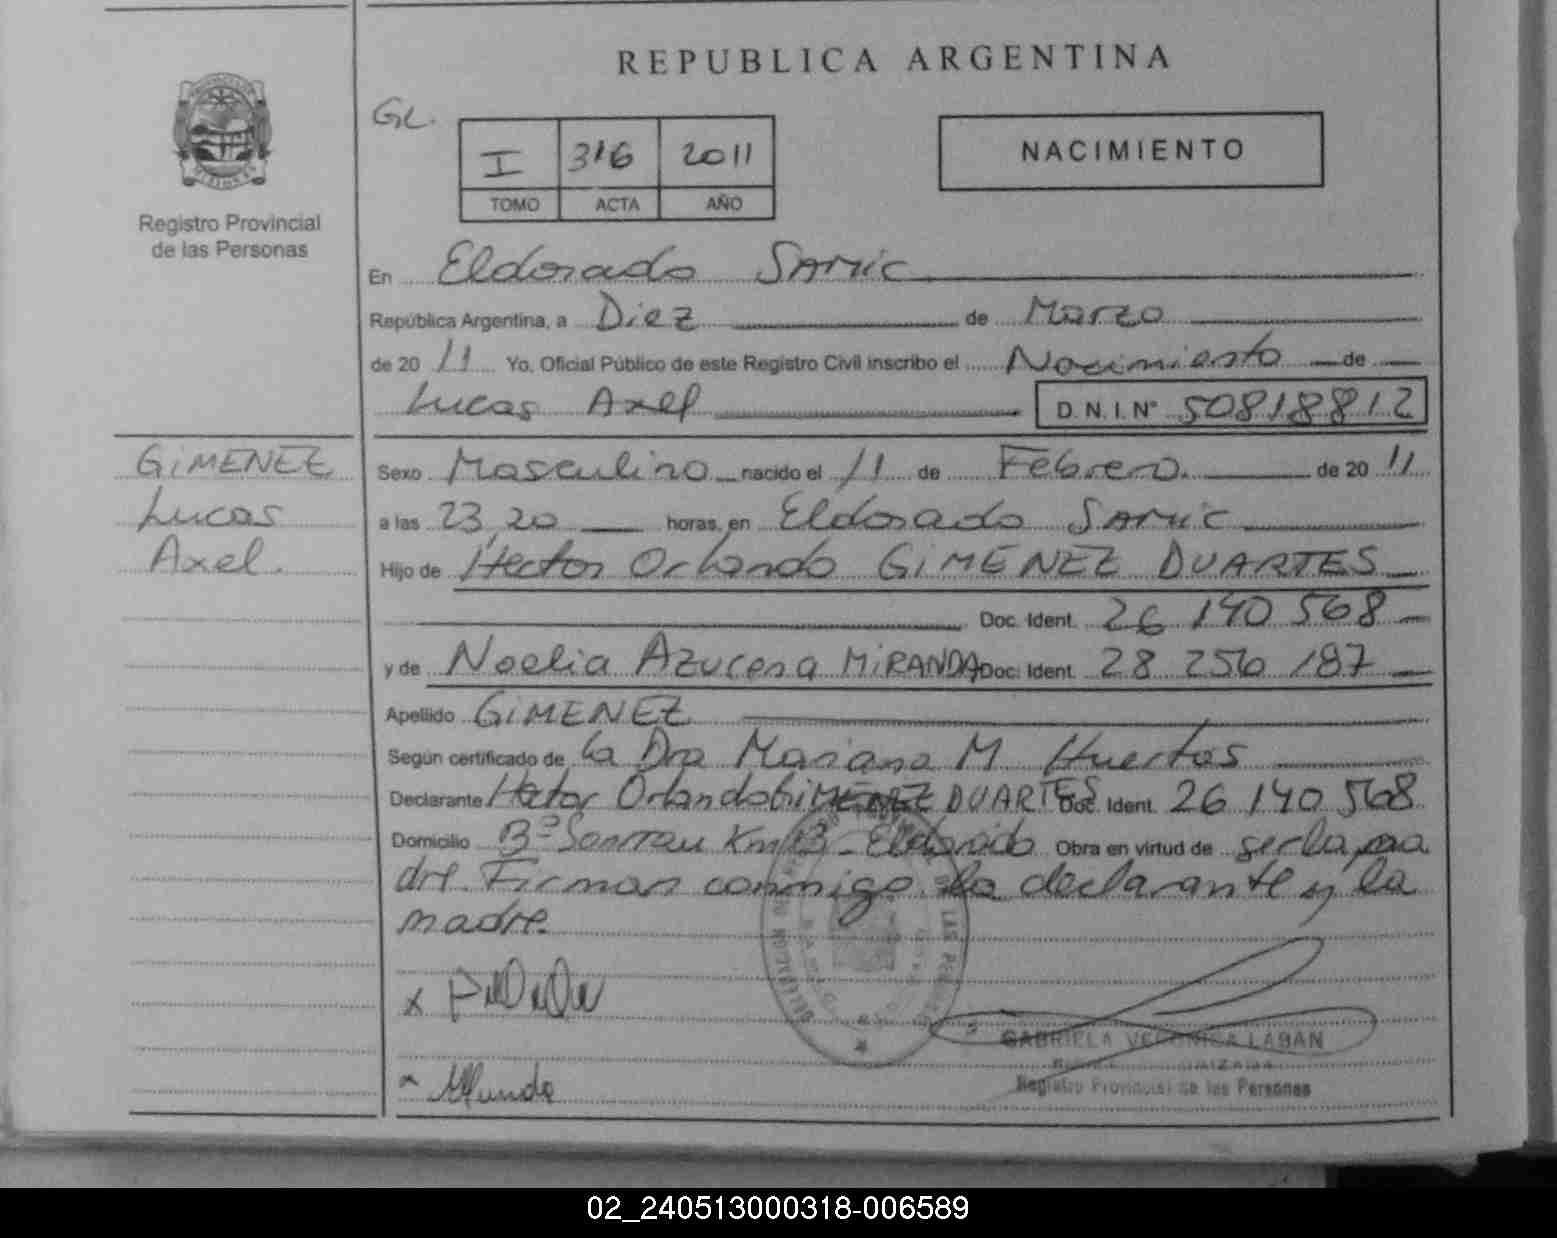 REPUBLICA ARGENTINA
GL.
I 316 2011
TOMO ACTA AÑO
NACIMIENTO
MISIONES
Registro Provincial
de las Personas
En Eldorado SAMIC
República Argentina, a Diez de Marzo
de 20 11 Yo, Oficial Público de este Registro Civil inscribo el Nacimiento de
Lucas Axel D.N.I. Nº 50818812
GIMENEZ
Lucas
Axel.
Sexo Masculino nacido el 11 de Febrero. de 20 11
a las 23,20 horas, en Eldorado SAMIC
Hijo de Hector Orlando GIMENEZ DUARTES
Doc. Ident. 26 140 568
y de Noelia Azucena MIRANDA Doc. Ident. 28 256 187
Apellido GIMENEZ
Según certificado de la Dra Mariana M Huertas
Declarante Hector Orlando GIMENEZ DUARTES Doc. Ident. 26 140 568
Domicilio Bº Eldorado Obra en virtud de ser la pa
dre. Firman conmigo la declarante y la
madre.
x
GABRIELA VERONICA LABAN
Registro Provincial de las Personas
02_240513000318-006589